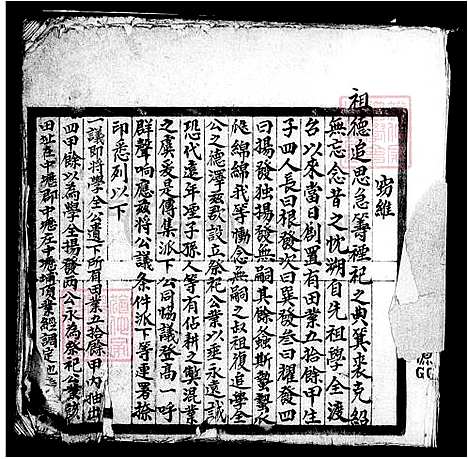 竊維
祖德追思急籌種祀之典箕裘克紹
無忘念昔之忱朔自先祖學全渡
台以來當日創置有田業五拾餘甲生
子四人長曰根發次曰巽發叁曰耀發四
曰揚發独揚發無嗣其餘螽斯蟄蟄
瓞綿綿我等慟念無嗣之叔復追學全
公之德澤茲欲設立祭祀公業以垂永遠誠
恐代遠年堙子孫人等有佔耕之獘混業
之虞爰是傳集派下公同協議登高一呼
群聲响應茲將公議条件派下等連署捺
印悉列以下
一議即將學全公遺下所有田業五拾餘甲內抽出
四甲餘以為學全揚發兩公永為祭祀公業
田址在中壢郡中壢庄中壢